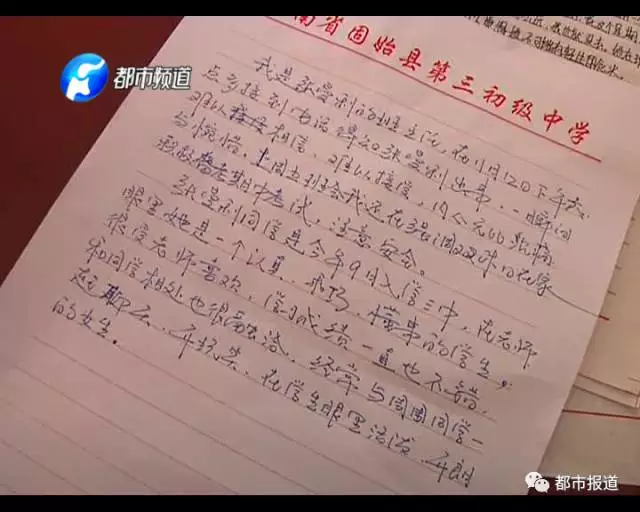 都市频道
南省固始县第三初级中学
我是张曼利的班主任，在11月12日下午六
点多接到电话得知张曼利出事，一瞬间
难以相信，难以接受，内心无比歉疚
与惋惜。上周五班会我还在强调双休日在家
积极备老期中考试，注意安全。
张曼利同学是今年9月入学三中，在老师
眼里她是一个认真、乖巧、懂事的学生，
很受老师喜欢，学习成绩一直也不错，
和同学相处也很融洽，经常与周围同学一
起聊天、开玩笑，在学生眼里活泼、开朗
的女生。
都市报道